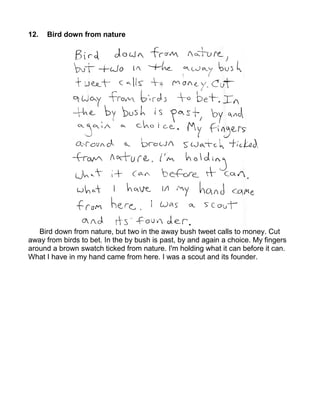 12. Bird down from nature
Bird down from nature,
but two in the away bush
tweet calls to money. Cut
away from birds to bet. In
the by bush is past, by and
again a choice. My fingers
around a brown swatch ticked
from nature. I'm holding
what it can before it can.
what I have in my hand came
from here. i was a scout
and its founder.
Bird down from nature, but two in the away bush tweet calls to money. Cut
away from birds to bet. In the by bush is past, by and again a choice. My fingers
around a brown swatch ticked from nature. I'm holding what it can before it can.
What I have in my hand came from here. I was a scout and its founder.